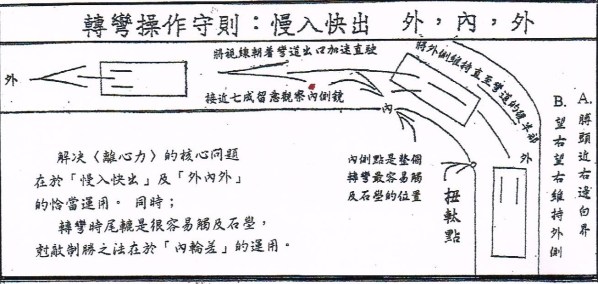 轉彎操作守則：慢入快出　外，內，外
將視線朝着彎道出口加速直駛
外
接近七成留意觀察內側鏡
內
將外側維持直至彎道的後半部
外
內側點是整個
轉彎最容易觸
及石壆的位置
扭軚點
A. 膊頭近右邊白界
B. 望右望右維持外側
解决〈離心力〉的核心問題
在於「慢入快出」及「外內外」
的恰當運用。 同時；
轉彎時尾轆是很容易觸及石壆，
尅敵制勝之法在於「內輪差」的運用。